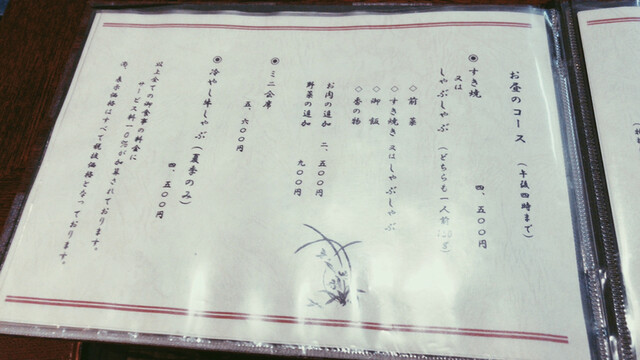 お昼のコース（午後四時まで）
◉ すき焼
又は
しゃぶしゃぶ（どちらも一人前
四、五〇〇円
◇ 前菜
◇ すき焼き又はしゃぶしゃぶ
◇ 御飯
◇ 香の物
お肉の追加 二、五〇〇円
野菜の追加 九〇〇円
◉ ミニ会席
五、六〇〇円
◉ 冷やし牛しゃぶ（夏季のみ）
四、五〇〇円
以上全ての御食事の料金に
サービス料一〇％が加算されております。
尚、表示価格はすべて税抜価格となっております。